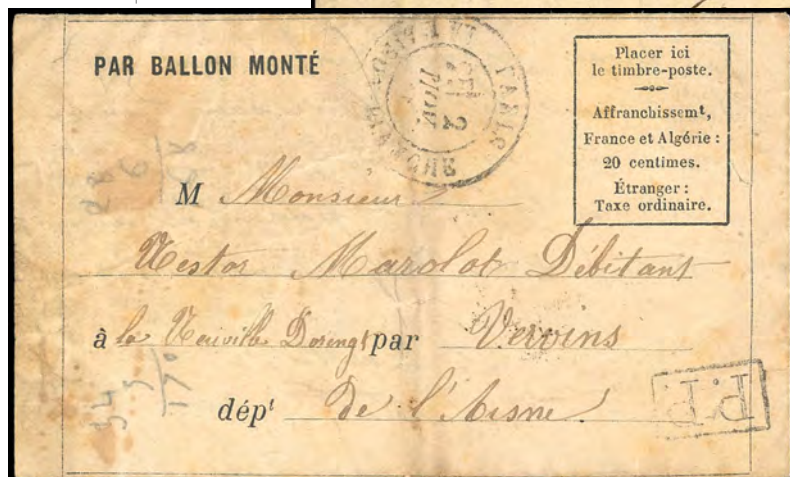 PAR BALLON MONTÉ
Placer ici
le timbre-poste.
Affranchissemt,
France et Algérie :
20 centimes.
Étranger :
Taxe ordinaire.
PARIS
2
NOV.
M Monsieur
Nestor Marolot Débitant
à la Neuville Dorengt par Vervins
dépt de l'Aisne
P.P.
28
6
68
34
5
170